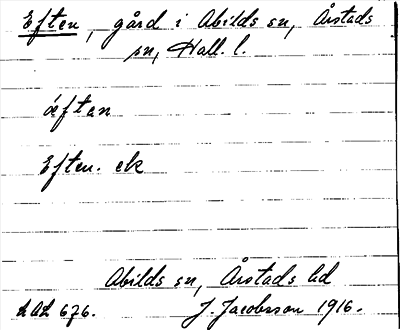 Eften, gård i Abilds sn, Årstads
sn, Hall. l.
æftan
Eften. ek
Abilds sn, Årstads hd
LAL 676. J. Jacobsson 1916.